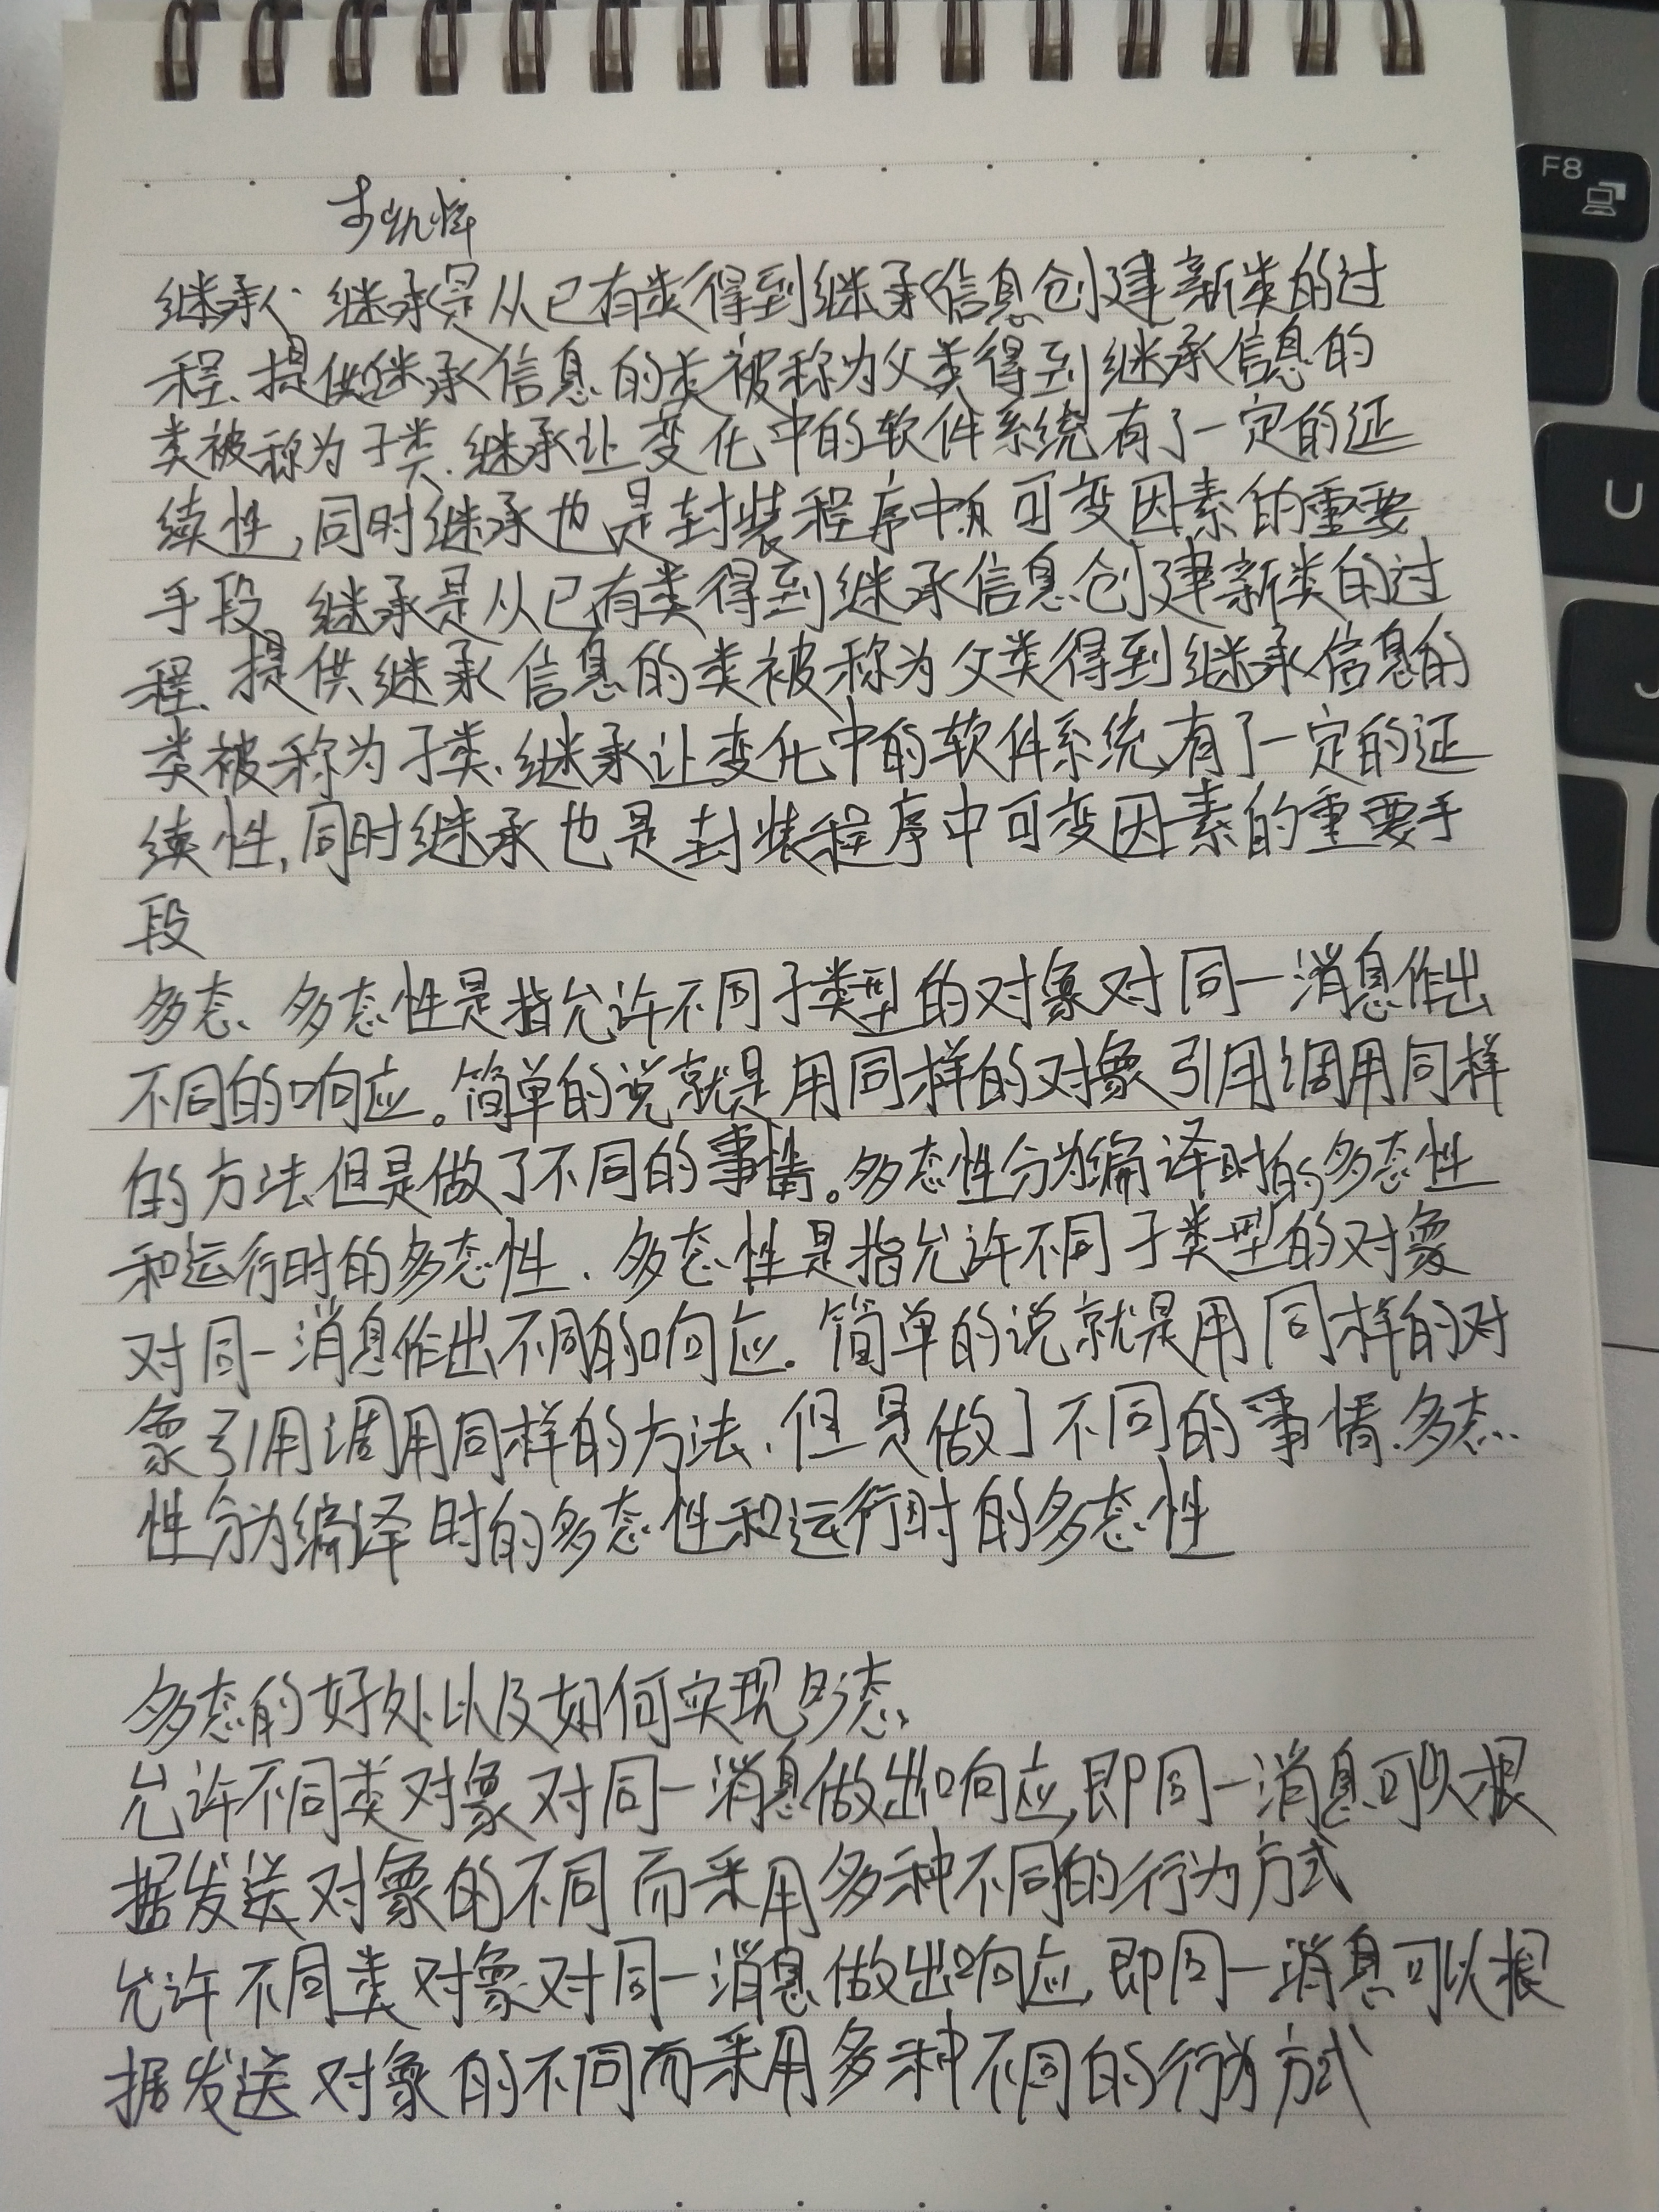 继承: 继承是从已有类得到继承信息创建新类的过
程、提供继承信息的类被称为父类得到继承信息的
类被称为子类.继承让变化中的软件系统有了一定的延
续性,同时继承也是封装程序中可变因素的重要
手段、继承是从已有类得到继承信息创建新类的过
程、提供继承信息的类被称为父类得到继承信息的
类被称为子类、继承让变化中的软件系统有了一定的延
续性,同时继承也是封装程序中可变因素的重要手
段
多态、多态性是指允许不同子类型的对象对同一消息作出
不同的响应。简单的说就是用同样的对象引用调用同样
的方法但是做了不同的事情。多态性分为编译时的多态性
和运行时的多态性、多态性是指允许不同子类型的对象
对同一消息作出不同的响应.简单的说就是用同样的对
象引用调用同样的方法、但是做了不同的事情.多态
性分为编译时的多态性和运行时的多态性
多态的好处以及如何实现多态、
允许不同类对象对同一消息做出响应,即同一消息可以根
据发送对象的不同而采用多种不同的行为方式
允许不同类对象对同一消息做出响应,即同一消息可以根
据发送对象的不同而采用多种不同的行为方式
F8
U
J